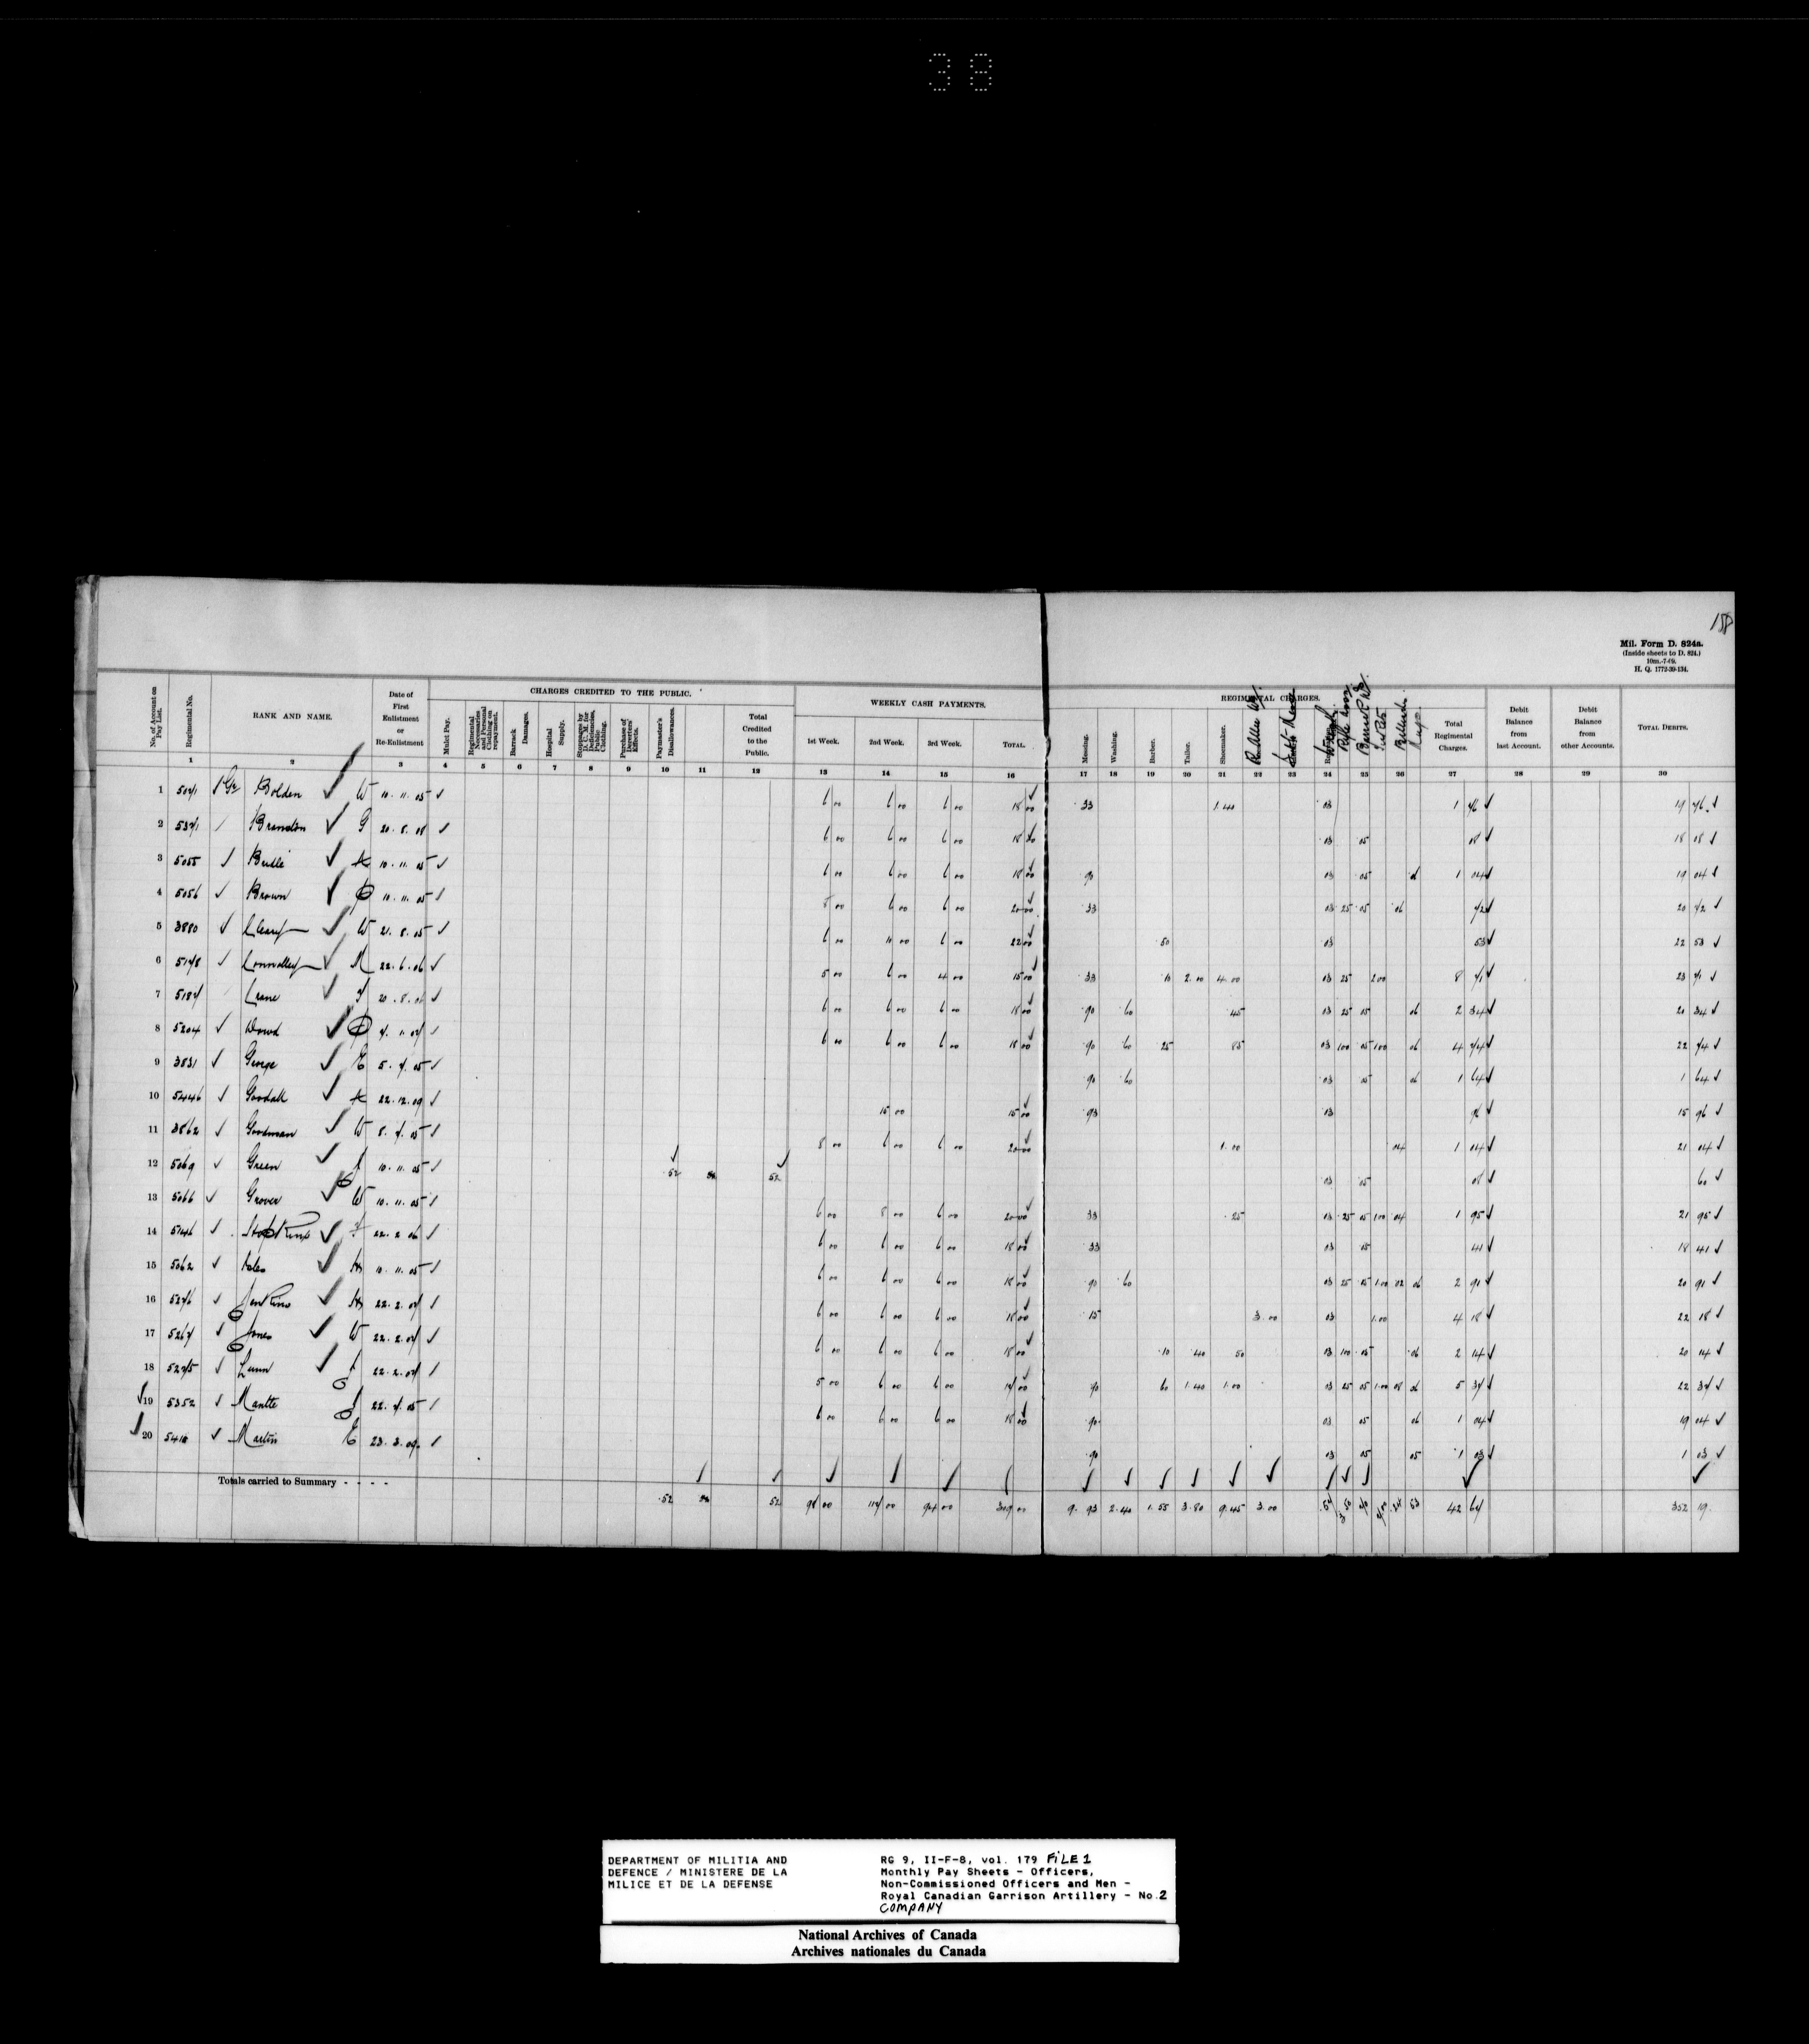 38
158
Mil. Form D. 824a.
(Inside sheets to D. 824.)
10m.-7-09.
H. Q. 1772-39-134.
CHARGES CREDITED TO THE PUBLIC. WEEKLY CASH PAYMENTS. REGIMENTAL CHARGES.
No. of Account on Pay List. Regimental No. RANK AND NAME. Date of First Enlistment or Re-Enlistment Mulct Pay. Regimental Necessaries and Personal Clothing on repayment. Barrack Damages. Hospital Supply. Stoppages by D. C. M. for Deficiencies, Public Clothing. Purchase of Deserters' Effects. Paymaster's Disallowances. Total Credited to the Public. 1st Week. 2nd Week. 3rd Week. TOTAL. Messing. Washing. Barber. Tailor. Shoemaker. Total Regimental Charges. Debit Balance from last Account. Debit Balance from other Accounts. TOTAL DEBITS.
1 2 3 4 5 6 7 8 9 10 11 12 13 14 15 16 17 18 19 20 21 22 23 24 25 26 27 28 29 30
1 5071 Gr Bolden W 10.11.05 6 00 6 00 6 00 18 00 33 1.40 03 1 76 19 76
2 5371 Brandon G 20.8.08 6 00 6 00 6 00 18 00 03 05 08 18 08
3 5055 10.11.05 6 00 6 00 6 00 18 00 90 03 05 06 1 04 19 04
4 5056 Brown 10.11.05 8 00 6 00 6 00 20 00 33 03 25 05 06 72 20 72
5 3880 Cleary W 21.8.05 6 00 10 00 6 00 22 00 50 03 53 22 53
6 5178 Connolley M 22.6.06 5 00 6 00 4 00 15 00 33 10 2.00 4.00 03 25 2 00 8 71 23 71
7 5187 Crane 6 00 6 00 6 00 18 00 90 60 45 03 25 05 06 2 34 20 34
8 5204 Dowd 7.1.07 6 00 6 00 6 00 18 00 90 60 25 85 03 1 00 05 1 00 06 4 74 22 74
9 3831 George E 5.7.05 90 60 03 05 06 1 64 1 64
10 5446 Goodall 22.12.09 15 00 15 00 93 03 96 15 96
11 3862 Goodman W 8.7.05 8 00 6 00 6 00 20 00 1.00 04 1 04 21 04
12 5069 Green J 10.11.05 52 52 03 05 08 60
13 5066 Grover W 10.11.05 6 00 8 00 6 00 20 00 33 25 03 25 05 1 00 04 1 95 21 95
14 5146 Hopkins 22.2.06 6 00 6 00 6 00 18 00 33 03 05 41 18 41
15 5062 10.11.05 6 00 6 00 6 00 18 00 90 60 03 25 05 1.00 02 06 2 91 20 91
16 5276 Jenkins 22.2.07 6 00 6 00 6 00 18 00 15 3.00 03 1.00 4 18 22 18
17 5267 Jones W 22.2.07 6 00 6 00 6 00 18 00 10 40 50 03 1 00 05 06 2 14 20 14
18 5275 Lunn J 22.2.07 5 00 6 00 6 00 17 00 90 60 1.40 1.00 03 25 05 1.00 08 06 5 37 22 37
19 5352 Mantle J 22.7.05 6 00 6 00 6 00 18 00 90 03 05 06 1 04 19 04
20 5418 Martin E 23.3.09 90 03 05 05 1 03 1 03
Totals carried to Summary - - - - .52 52 98 00 117 00 94 00 309 00 9.93 2.40 1.55 3.80 9.45 3.00 .54 3 50 70 7.00 .24 53 42 67 352 19
DEPARTMENT OF MILITIA AND
DEFENCE / MINISTERE DE LA
MILICE ET DE LA DEFENSE
RG 9, II-F-8, vol. 179 FiLE 1
Monthly Pay Sheets - Officers,
Non-Commissioned Officers and Men -
Royal Canadian Garrison Artillery - No.2
COMPANY
National Archives of Canada
Archives nationales du Canada